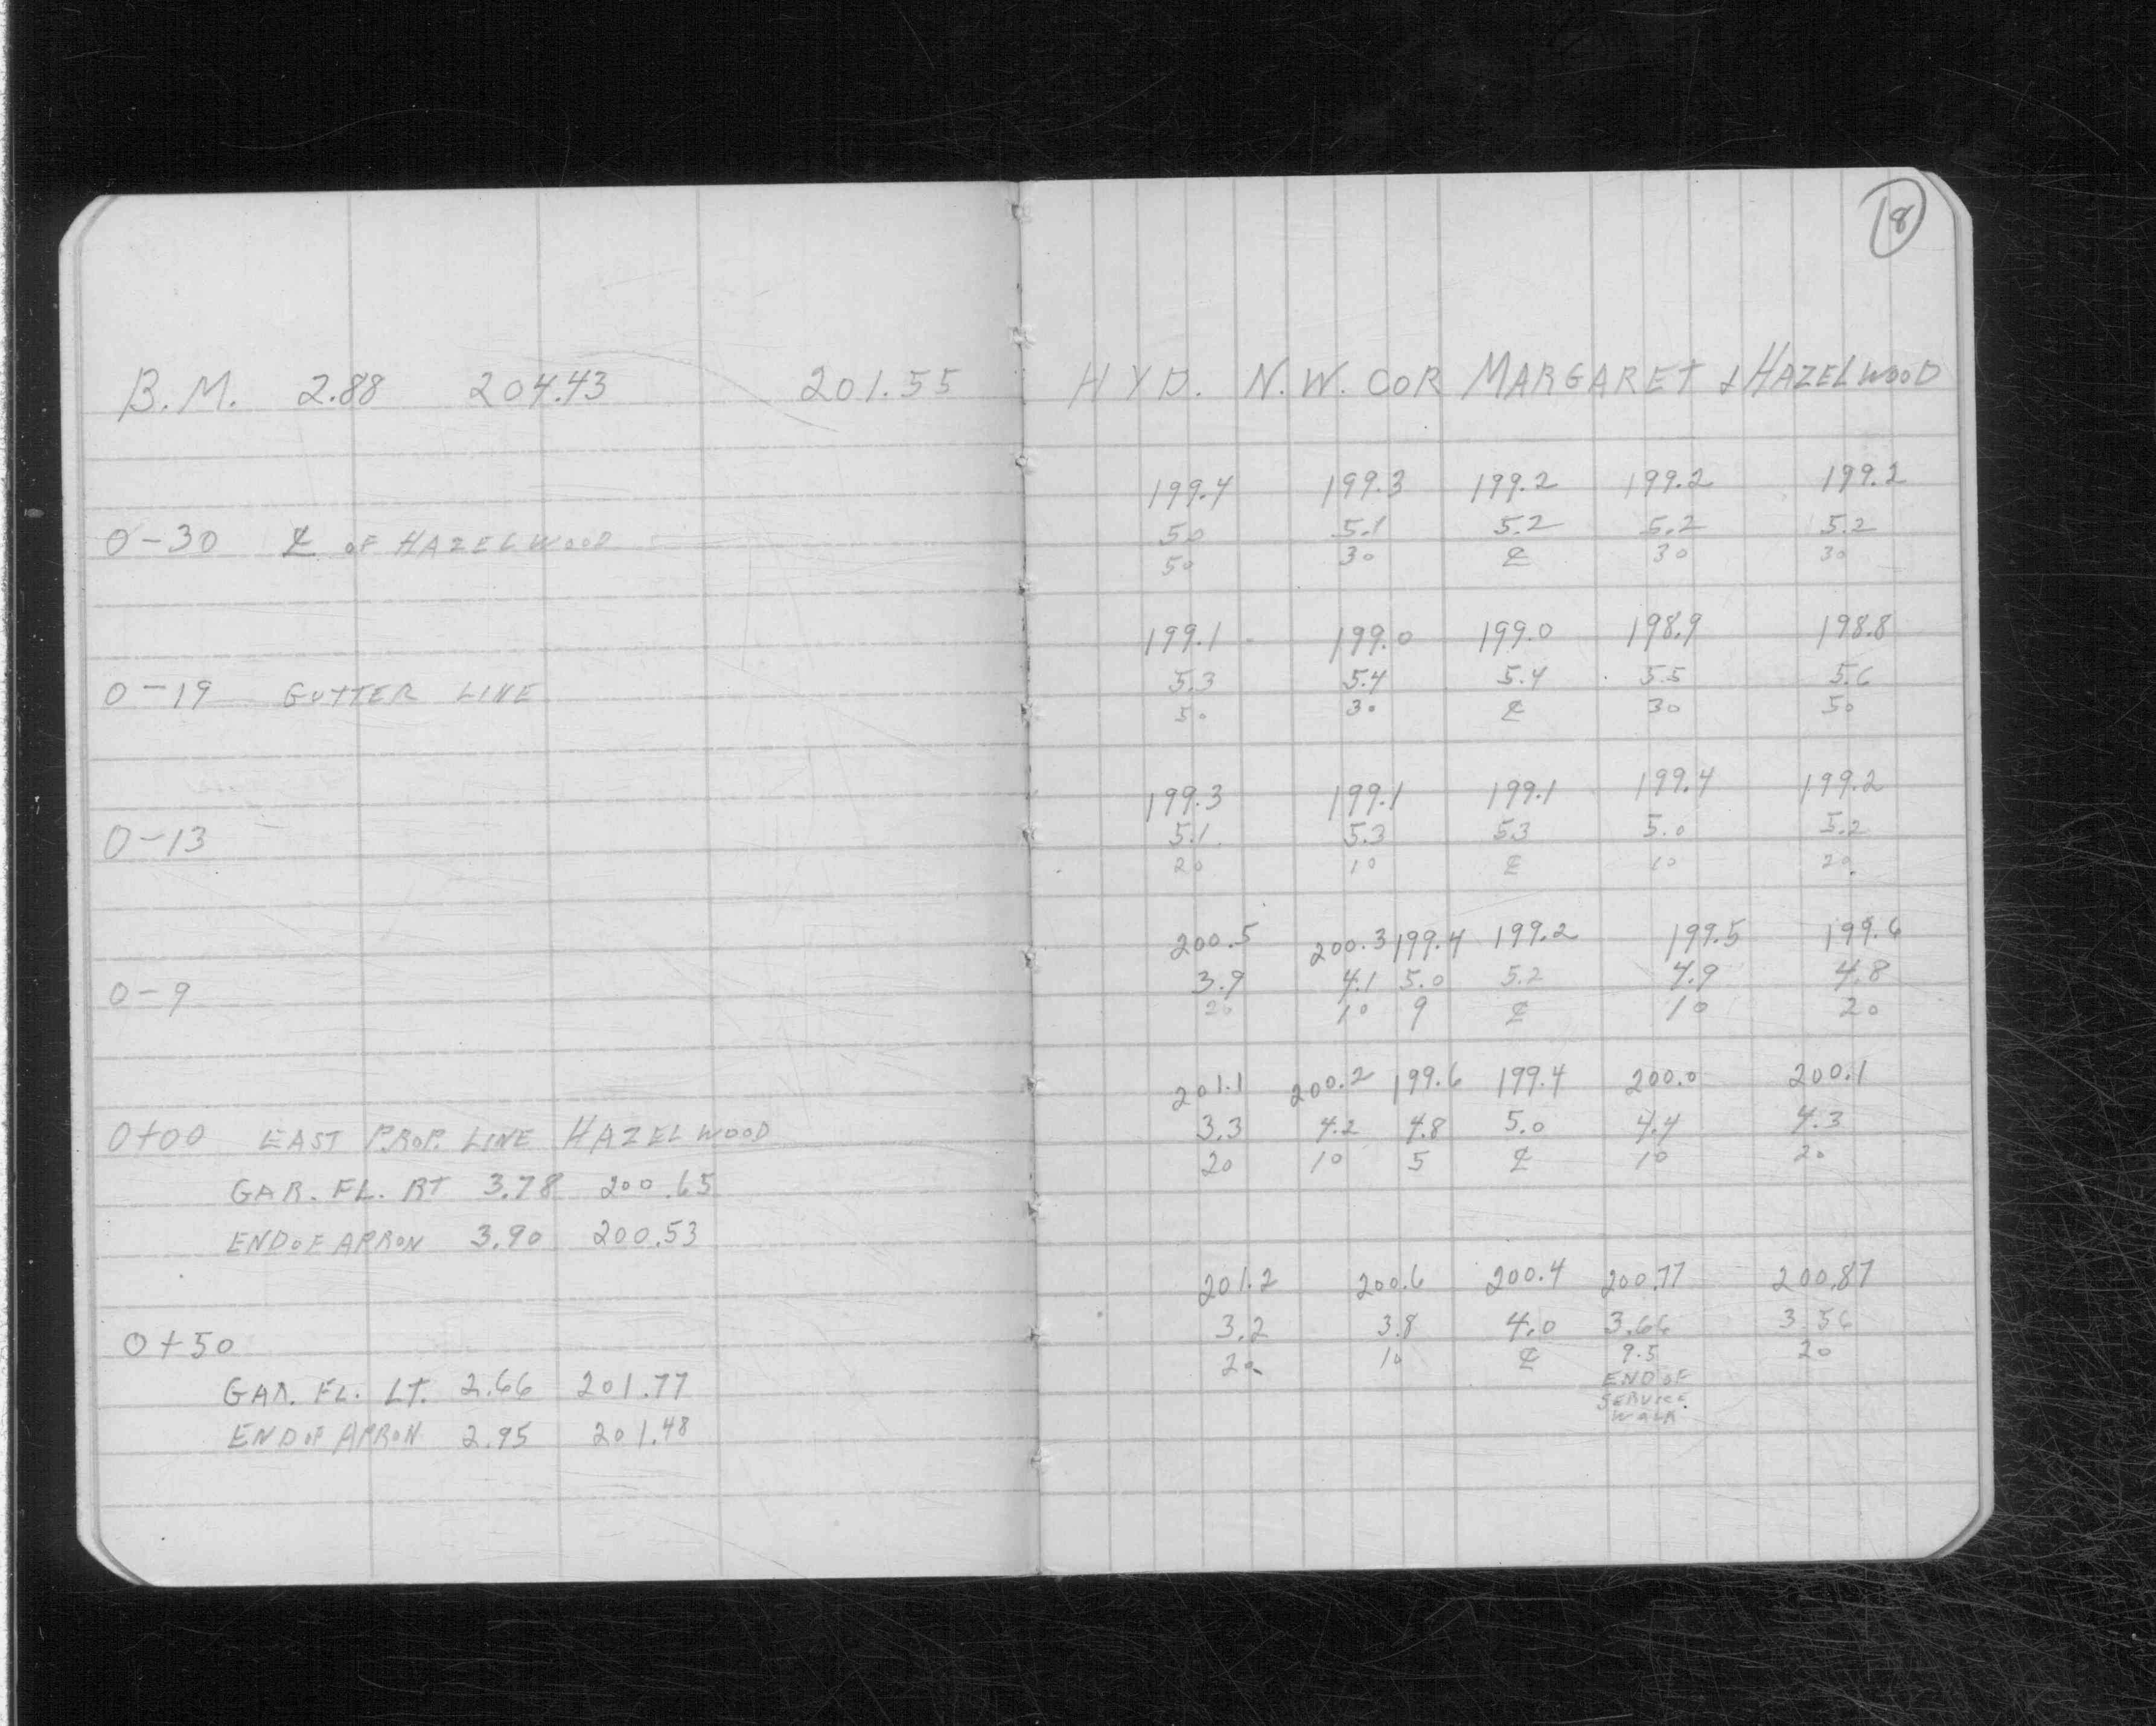 18
B.M. 2.88 204.43 201.55 HYD. N.W. COR MARGARET & HAZELWOOD
199.4 199.3 199.2 199.2 199.2
0-30 ℄ OF HAZELWOOD 50 5.1 5.2 5.2 5.2
50 30 ℄ 30 30
199.1 199.0 199.0 198.9 198.8
0-19 GUTTER LINE 5.3 5.4 5.4 5.5 5.6
50 30 ℄ 30 50
199.3 199.1 199.1 199.4 199.2
0-13 5.1 5.3 53 5.0 5.2
20 10 ℄ 10 20
200.5 200.3 199.4 199.2 199.5 199.6
0-9 3.9 4.1 5.0 5.2 4.9 4.8
20 10 9 ℄ 10 20
201.1 200.2 199.6 199.4 200.0 200.1
0+00 EAST PROP. LINE HAZELWOOD 3.3 4.2 4.8 5.0 4.4 4.3
20 10 5 ℄ 10 20
GAR. FL. RT 3.78 200.65
END OF APRON 3.90 200.53
201.2 200.6 200.4 200.77 200.87
0+50 3.2 3.8 4.0 3.66 3.56
20 10 ℄ 9.5 20
END OF
SERVICE
WALK
GAR. FL. LT. 2.66 201.77
END OF APRON 2.95 201.48